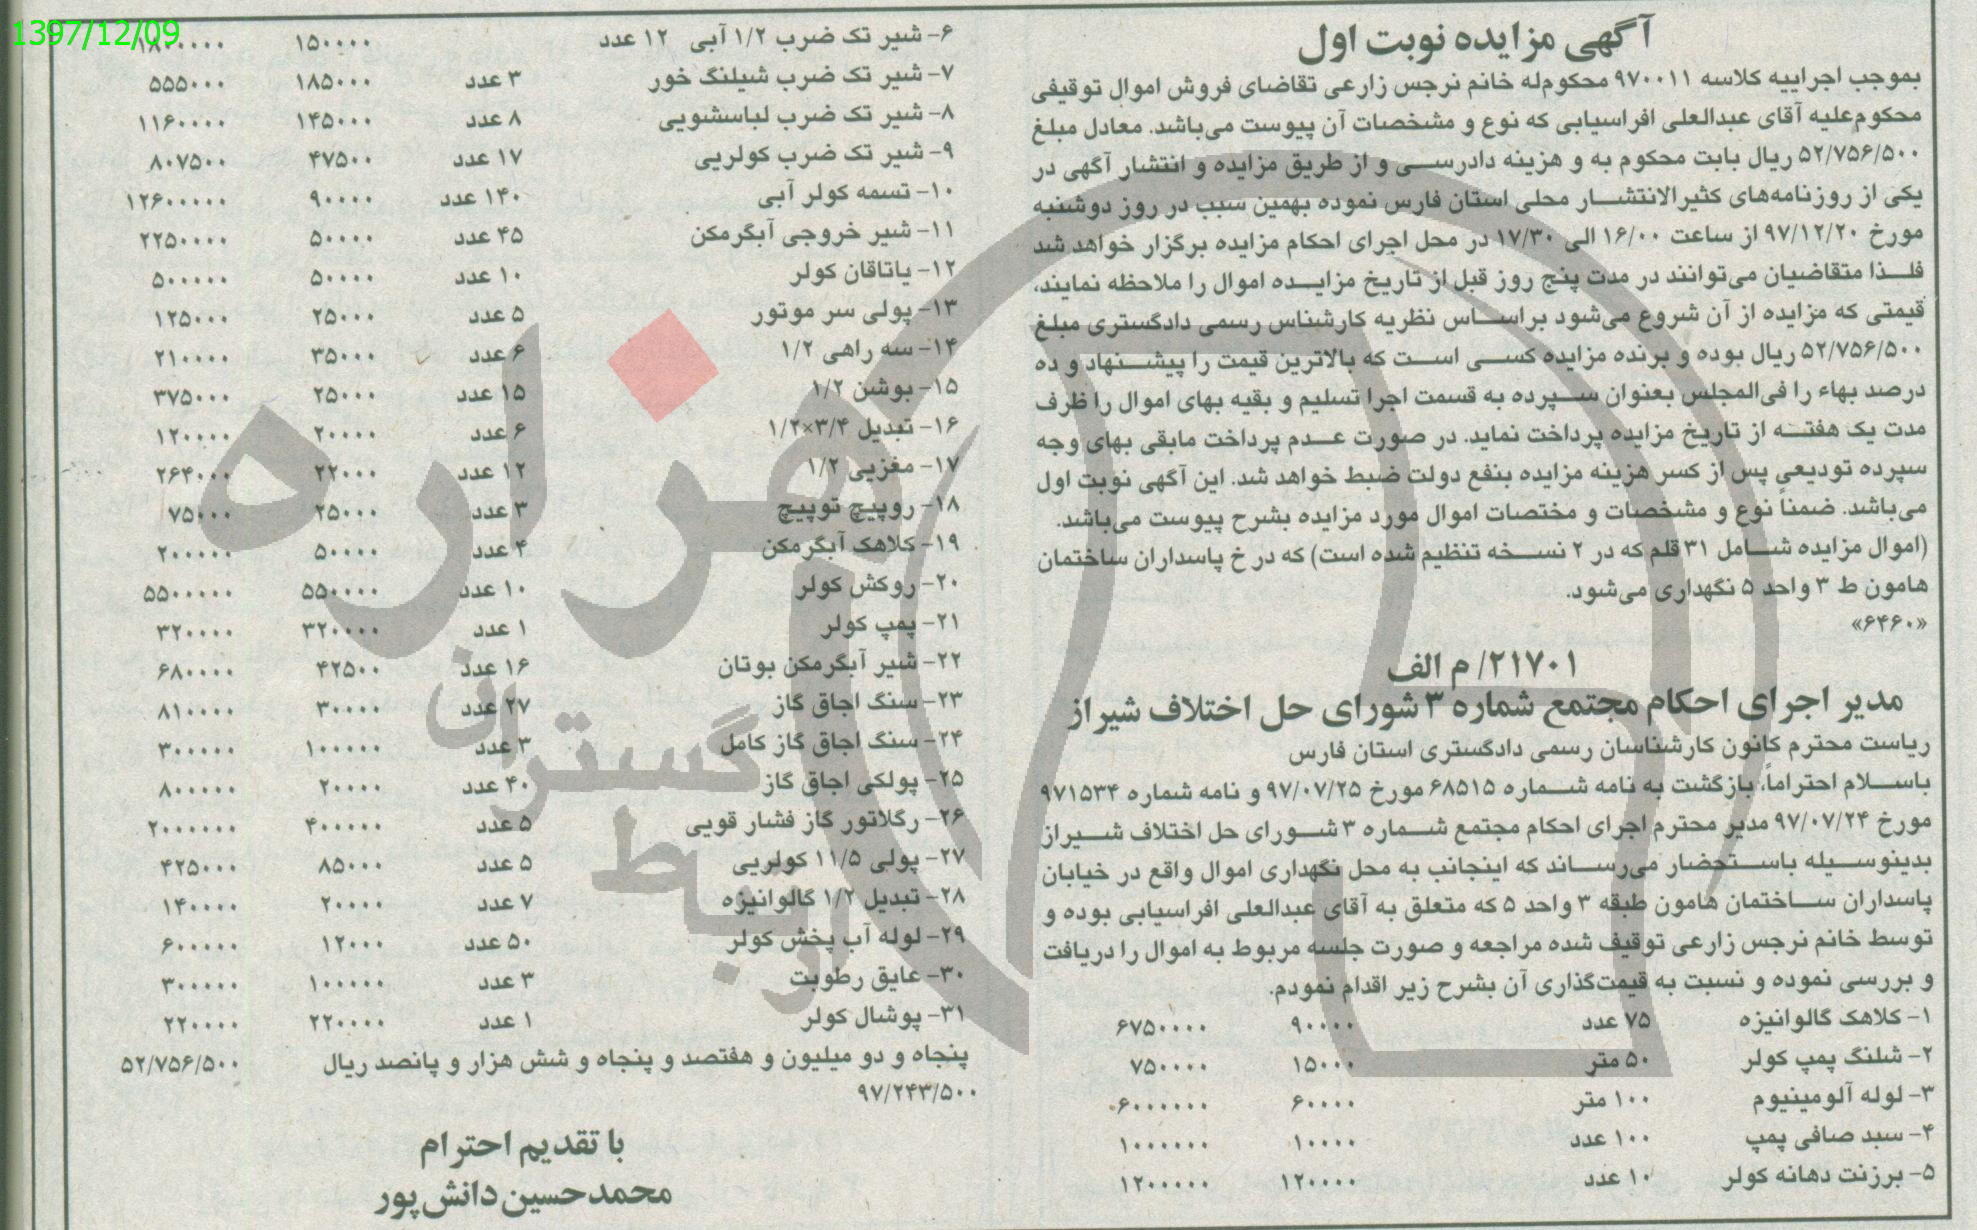 1397/12/09
آگهی مزایده نوبت اول
بموجب اجراییه کلاسه ۹۷۰۰۱۱ محکوم‌له خانم نرجس زارعی تقاضای فروش اموال توقیفی
محکوم‌علیه آقای عبدالعلی افراسیابی که نوع و مشخصات آن پیوست می‌باشد. معادل مبلغ
۵۲/۷۵۶/۵۰۰ ریال بابت محکوم به و هزینه دادرسی و از طریق مزایده و انتشار آگهی در
یکی از روزنامه‌های کثیرالانتشار محلی استان فارس نموده بهمین سبب در روز دوشنبه
مورخ ۹۷/۱۲/۲۰ از ساعت ۱۶/۰۰ الی ۱۷/۳۰ در محل اجرای احکام مزایده برگزار خواهد شد
فلذا متقاضیان می‌توانند در مدت پنج روز قبل از تاریخ مزایده اموال را ملاحظه نمایند،
قیمتی که مزایده از آن شروع می‌شود براساس نظریه کارشناس رسمی دادگستری مبلغ
۵۲/۷۵۶/۵۰۰ ریال بوده و برنده مزایده کسی است که بالاترین قیمت را پیشنهاد و ده
درصد بهاء را فی‌المجلس بعنوان سپرده به قسمت اجرا تسلیم و بقیه بهای اموال را ظرف
مدت یک هفته از تاریخ مزایده پرداخت نماید. در صورت عدم پرداخت مابقی بهای وجه
سپرده تودیعی پس از کسر هزینه مزایده بنفع دولت ضبط خواهد شد. این آگهی نوبت اول
می‌باشد. ضمناً نوع و مشخصات و مختصات اموال مورد مزایده بشرح پیوست می‌باشد.
(اموال مزایده شامل ۳۱ قلم که در ۲ نسخه تنظیم شده است) که در خ پاسداران ساختمان
هامون ط ۳ واحد ۵ نگهداری می‌شود.
«۶۴۶۰»
۲۱۷۰۱/ م الف
مدیر اجرای احکام مجتمع شماره ۳ شورای حل اختلاف شیراز
ریاست محترم کانون کارشناسان رسمی دادگستری استان فارس
باسلام احتراماً، بازگشت به نامه شماره ۶۸۵۱۵ مورخ ۹۷/۰۷/۲۵ و نامه شماره ۹۷۱۵۳۴
مورخ ۹۷/۰۷/۲۴ مدیر محترم اجرای احکام مجتمع شماره ۳ شورای حل اختلاف شیراز
بدینوسیله باستحضار می‌رساند که اینجانب به محل نگهداری اموال واقع در خیابان
پاسداران ساختمان هامون طبقه ۳ واحد ۵ که متعلق به آقای عبدالعلی افراسیابی بوده و
توسط خانم نرجس زارعی توقیف شده مراجعه و صورت جلسه مربوط به اموال را دریافت
و بررسی نموده و نسبت به قیمت‌گذاری آن بشرح زیر اقدام نمودم.
۱- کلاهک گالوانیزه ۷۵ عدد ۹۰۰۰۰ ۶۷۵۰۰۰۰
۲- شلنگ پمپ کولر ۵۰ متر ۱۵۰۰۰ ۷۵۰۰۰۰
۳- لوله آلومینیوم ۱۰۰ متر ۶۰۰۰۰ ۶۰۰۰۰۰۰
۴- سبد صافی پمپ ۱۰۰ عدد ۱۰۰۰۰ ۱۰۰۰۰۰۰
۵- برزنت دهانه کولر ۱۰ عدد ۱۲۰۰۰۰ ۱۲۰۰۰۰۰
۶- شیر تک ضرب ۱/۲ آبی ۱۲ عدد ۱۵۰۰۰۰ ۱۸۰۰۰۰۰
۷- شیر تک ضرب شیلنگ خور ۳ عدد ۱۸۵۰۰۰ ۵۵۵۰۰۰
۸- شیر تک ضرب لباسشویی ۸ عدد ۱۴۵۰۰۰ ۱۱۶۰۰۰۰
۹- شیر تک ضرب کولریی ۱۷ عدد ۴۷۵۰۰ ۸۰۷۵۰۰
۱۰- تسمه کولر آبی ۱۴۰ عدد ۹۰۰۰۰ ۱۲۶۰۰۰۰۰
۱۱- شیر خروجی آبگرمکن ۴۵ عدد ۵۰۰۰۰ ۲۲۵۰۰۰۰
۱۲- یاتاقان کولر ۱۰ عدد ۵۰۰۰۰ ۵۰۰۰۰۰
۱۳- پولی سر موتور ۵ عدد ۲۵۰۰۰ ۱۲۵۰۰۰
۱۴- سه راهی ۱/۲ ۶ عدد ۳۵۰۰۰ ۲۱۰۰۰۰
۱۵- بوشن ۱/۲ ۱۵ عدد ۲۵۰۰۰ ۳۷۵۰۰۰
۱۶- تبدیل ۳/۴×۱/۲ ۶ عدد ۲۰۰۰۰ ۱۲۰۰۰۰
۱۷- مغزیی ۱/۲ ۱۲ عدد ۲۲۰۰۰ ۲۶۴۰۰۰
۱۸- روپیچ توپیچ ۳ عدد ۲۵۰۰۰ ۷۵۰۰۰
۱۹- کلاهک آبگرمکن ۴ عدد ۵۰۰۰۰ ۲۰۰۰۰۰
۲۰- روکش کولر ۱۰ عدد ۵۵۰۰۰۰ ۵۵۰۰۰۰۰
۲۱- پمپ کولر ۱ عدد ۳۲۰۰۰۰ ۳۲۰۰۰۰
۲۲- شیر آبگرمکن بوتان ۱۶ عدد ۴۲۵۰۰ ۶۸۰۰۰۰
۲۳- سنگ اجاق گاز ۲۷ عدد ۳۰۰۰۰ ۸۱۰۰۰۰
۲۴- سنگ اجاق گاز کامل ۳ عدد ۱۰۰۰۰۰ ۳۰۰۰۰۰
۲۵- پولکی اجاق گاز ۴۰ عدد ۲۰۰۰۰ ۸۰۰۰۰۰
۲۶- رگلاتور گاز فشار قویی ۵ عدد ۴۰۰۰۰۰ ۲۰۰۰۰۰۰
۲۷- پولی ۱۱/۵ کولریی ۵ عدد ۸۵۰۰۰ ۴۲۵۰۰۰
۲۸- تبدیل ۱/۲ گالوانیزه ۷ عدد ۲۰۰۰۰ ۱۴۰۰۰۰
۲۹- لوله آب پخش کولر ۵۰ عدد ۱۲۰۰۰ ۶۰۰۰۰۰
۳۰- عایق رطوبت ۳ عدد ۱۰۰۰۰۰ ۳۰۰۰۰۰
۳۱- پوشال کولر ۱ عدد ۲۲۰۰۰۰ ۲۲۰۰۰۰
پنجاه و دو میلیون و هفتصد و پنجاه و شش هزار و پانصد ریال ۵۲/۷۵۶/۵۰۰
۹۷/۲۴۳/۵۰۰
با تقدیم احترام
محمدحسین دانش‌پور
هزاره
گستران